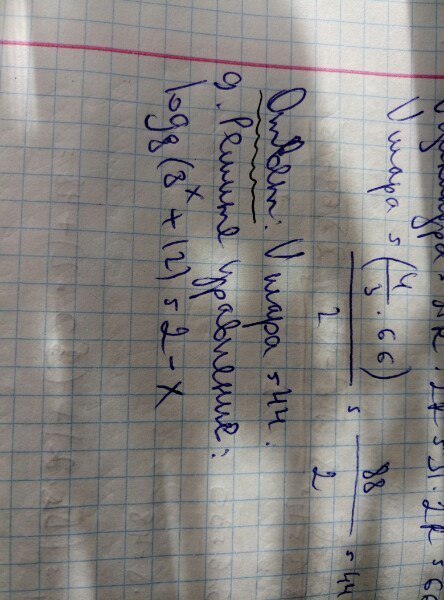 V шара = (4/3 · 66)/2 = 88/2 = 44
Ответ: V шара = 44.
9. Решите уравнение:
log₈(8ˣ + 12) = 2 - x